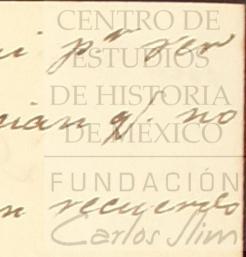 CENTRO DE
i pr. ser
ESTUDIOS
DE HISTORIA
rian q/. no
DE MÉXICO
FUNDACIÓN
n recuerdo
Carlos Slim